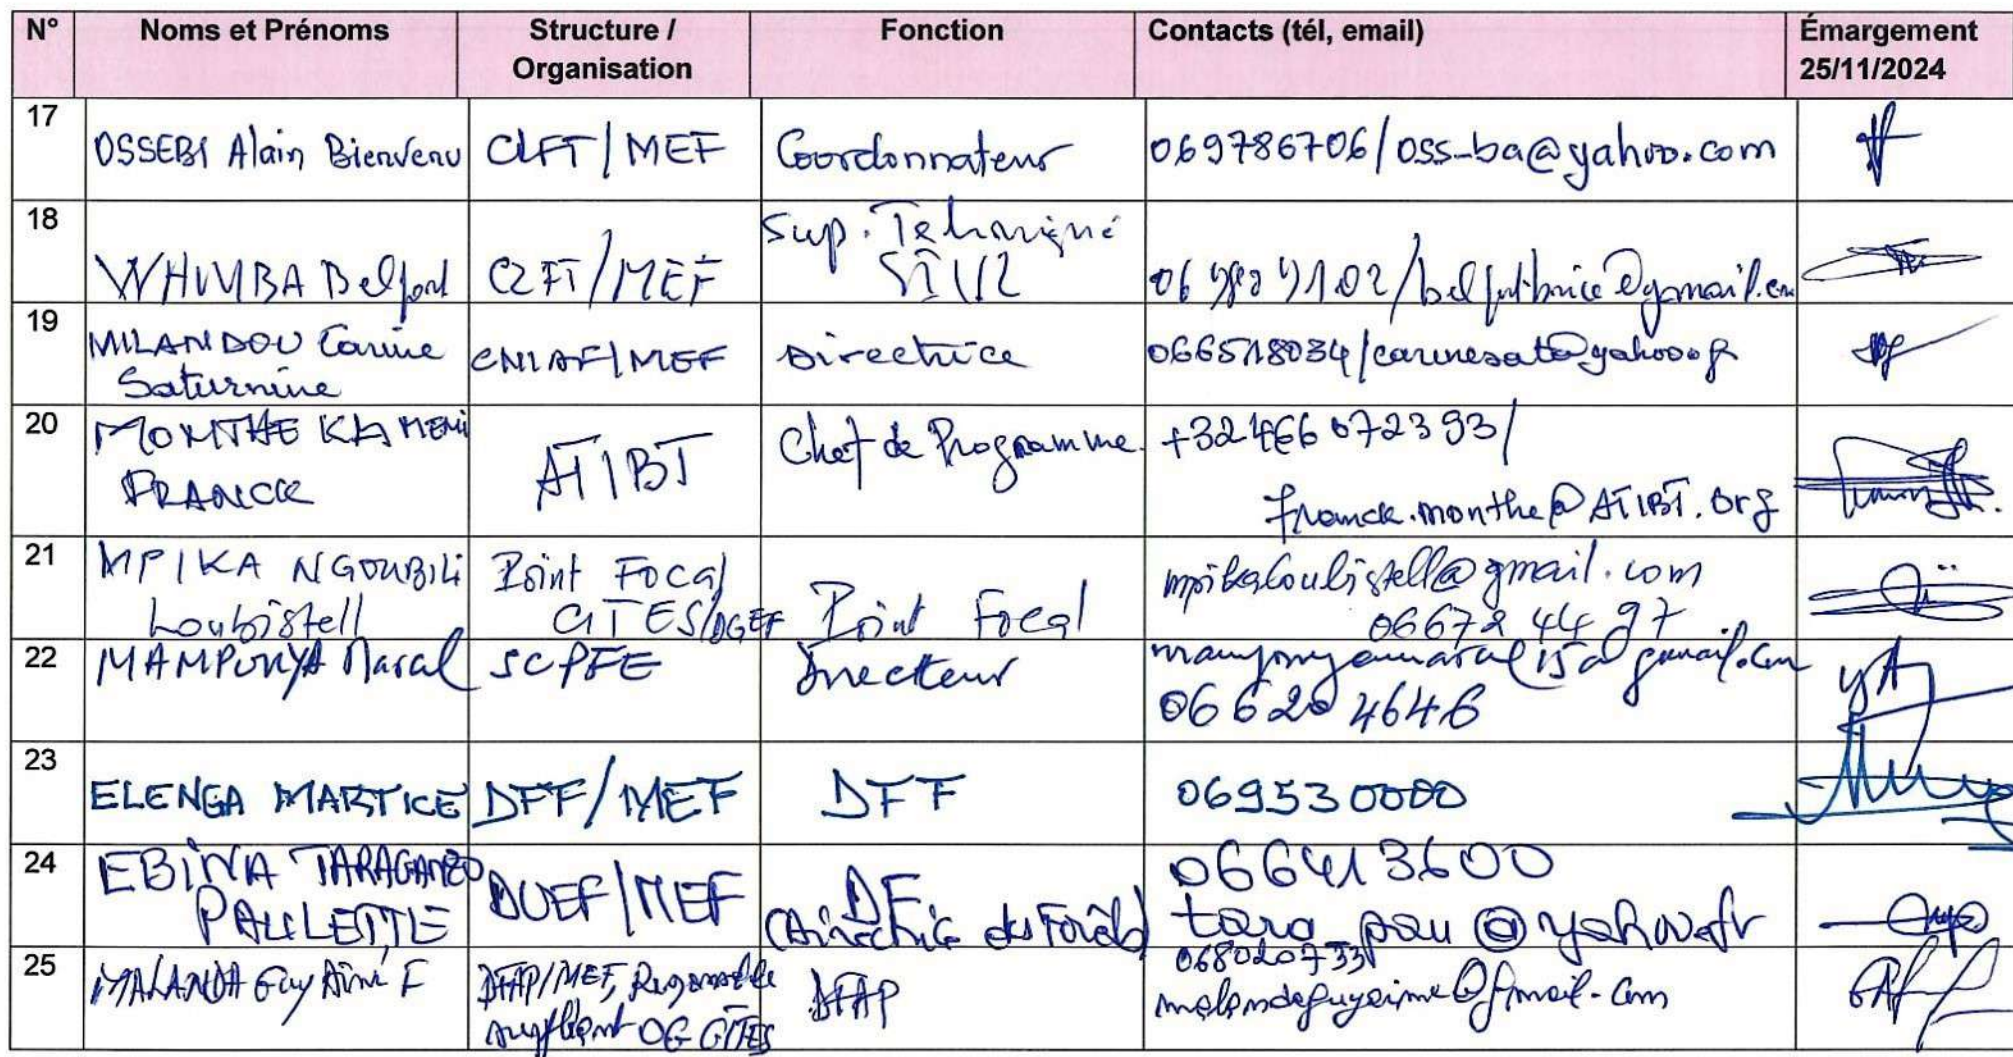 N° Noms et Prénoms Structure / Organisation Fonction Contacts (tél, email) Émargement 25/11/2024
17 OSSEBI Alain Bienvenu CLFT/MEF Coordonnateur 069786706/oss-ba@yahoo.com
18 Belfort /MEF Sup. 06
19 MILANDOU Carine Saturnine CNIAF/MEF Directrice 066518034/carinesat@yahoo.fr
20 MONTHE KAMENI FRANCK ATIBT Chef de Programme +32466072393/ franck.monthe@ATIBT.org
21 MPIKA NGOUBILI Loubistell Point Focal CITES/DGEF Point Focal mpikaloubistell@gmail.com 06672 44 97
22 MAMPOUYA Maral SCPFE Directeur 06 620 4646
23 ELENGA MARTICE DFF/MEF DFF 069530000
24 EBINA TARAGANZO PAULETTE /MEF DF (Directrice des Forêts) 066413600 tara_pau@yahoo.fr
25 MALANDA Guy Aimé F DFAP/MEF, Responsable suppléant OG CITES DFAP 068020733 malandaguyaime@gmail.com